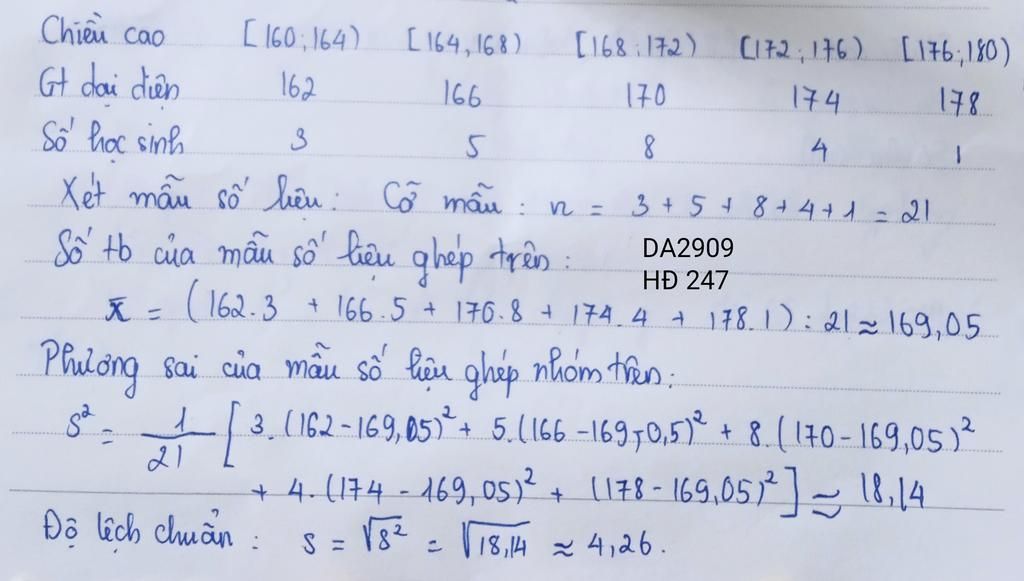 Chiều cao [160;164) [164,168) [168;172) [172;176) [176;180)
Gt đại diện 162 166 170 174 178
Số học sinh 3 5 8 4 1
Xét mẫu số liệu: Cỡ mẫu: n = 3 + 5 + 8 + 4 + 1 = 21
Số tb của mẫu số liệu ghép trên:
DA2909
HĐ 247
x̄ = (162.3 + 166.5 + 170.8 + 174.4 + 178.1) : 21 ≈ 169,05
Phương sai của mẫu số liệu ghép nhóm trên:
S² = 1/21 [ 3.(162-169,05)² + 5.(166-169,0,5)² + 8.(170-169,05)²
+ 4.(174-169,05)² + (178-169,05)² ] ≈ 18,14
Độ lệch chuẩn: s = √s² = √18,14 ≈ 4,26.